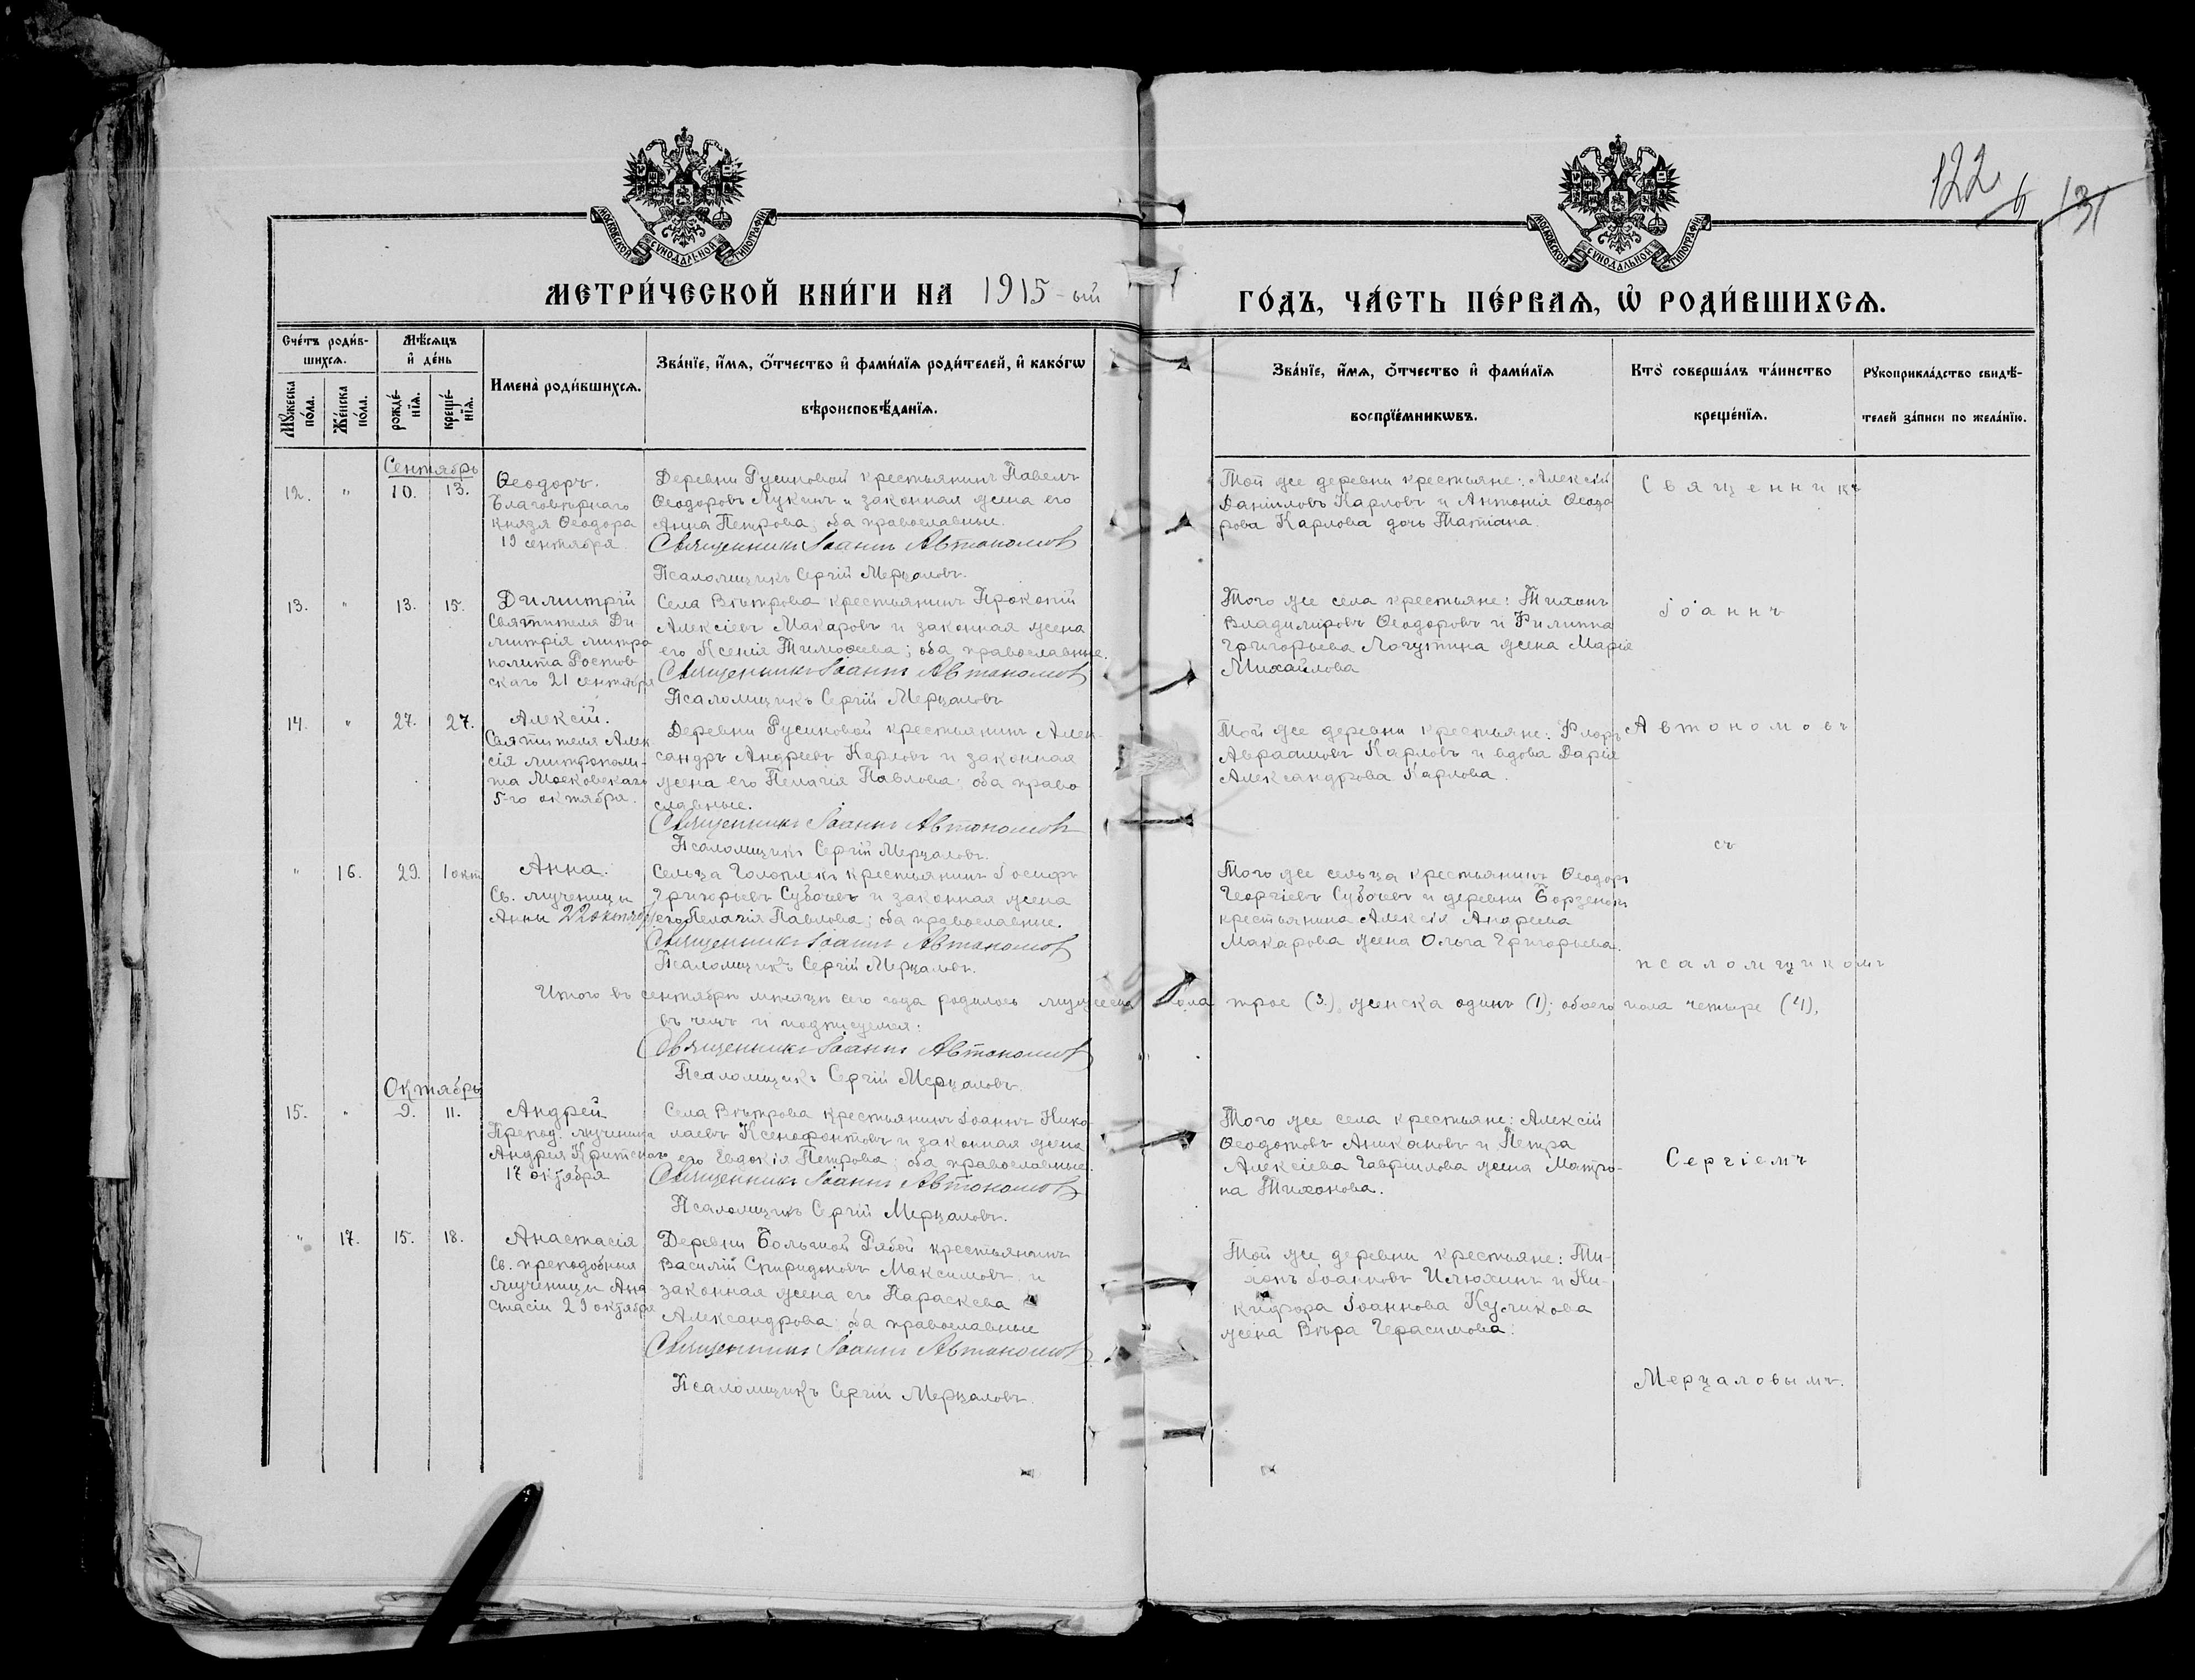 122
6 131
МОСКОВСКОЙ СѴНОДАЛЬНОЙ ТИПОГРАФІИ
МОСКОВСКОЙ СѴНОДАЛЬНОЙ ТИПОГРАФІИ
МЕТРИ́ЧЕСКОЙ КНИ́ГИ НА 1915-ый
ГО́ДЪ, ЧА́СТЬ ПЕ́РВАЯ, Ѽ РОДИ́ВШИХСЯ.
Сче́тъ роди́в-
шихся.
Мѣ́сяцъ
и҆ де́нь
Мꙋ́жеска
по́ла.
Же́нска
по́ла.
рожде́-
нїя.
креще́-
нїя.
Имена̀ роди́вшихся.
Зва́нїе, и҆́мя, ѻ҆́тчество и҆ фами́лїя роди́телей, и҆ како́гѡ
вѣроисповѣ́данїя.
Зва́нїе, и҆́мя, ѻ҆́тчество и҆ фами́лїя
воспрїе́мникѡвъ.
Кто̀ соверша́лъ та́инство
креще́нїя.
Рꙋкоприкла́дство свидѣ́-
телей за́писи по жела́нїю.
Сентябрь
12. " 10. 13.
Ѳеодоръ.
Благовѣрнаго
князя Ѳеодора
19 сентября
Деревни Русиновой крестьянинъ Павелъ
Ѳеодоровъ Лукинъ и законная жена его
Анна Петрова; оба православные.
Священникъ Іоаннъ Автономовъ
Псаломщикъ Сергій Мерцаловъ.
Той же деревни крестьяне: Алексій
Даниловъ Карловъ и Антонія Ѳеодо
рова Карлова дочь Татіана.
13. " 13. 15.
Димитрій
Святителя Ди
митрія митро
полита Ростов
скаго 21 сентября
Села Вѣтрова крестьянинъ Прокопій
Алексіевъ Макаровъ и законная жена
его Ксенія Тимоѳеева; оба православные.
Священникъ Іоаннъ Автономовъ
Псаломщикъ Сергій Мерцаловъ
Того же села крестьяне: Тихонъ
Владиміровъ Ѳеодоровъ и Филиппа
Григорьева Логутина жена Марія
Михайлова
14. " 27. 27.
Алексій.
Святителя Алек
сія митрополи-
та Московскаго
5-го октября.
Деревни Русиновой крестьянинъ Алек-
сандръ Андреевъ Карловъ и законная
жена его Пелагія Павлова; оба право
славные.
Священникъ Іоаннъ Автономовъ
Псаломщикъ Сергій Мерцаловъ.
Той же деревни крестьяне: Флоръ
Авраамовъ Карловъ и вдова Дарія
Александрова Карлова.
" 16. 29. 1 окт
Анна.
Св. мученицы
Анны 22 октября
Сельца Голоплекъ крестьянинъ Іосифъ
Григорьевъ Субочевъ и законная жена
его Пелагія Павлова; оба православные.
Священникъ Іоаннъ Автономовъ
Псаломщикъ Сергій Мерцаловъ.
Того же сельца крестьянинъ Ѳеодоръ
Георгіевъ Субочевъ и деревни
крестьянина Алексія Андреева
Макарова жена Ольга Григорьева.
Итого въ сентябрѣ мѣсяцѣ сего года родилось мужеска пола трое (3.), женска одинъ (1); обоего пола четыре (4),
въ чемъ и подписуемся:
Священникъ Іоаннъ Автономовъ
Псаломщикъ Сергій Мерцаловъ.
Октябрь
15. " 9. 11.
Андрей
Препод. мученика
Андрея Критскаго
17 октября
Села Вѣтрова крестьянинъ Іоаннъ Нико-
лаевъ Ксенофонтовъ и законная жена
его Евдокія Петрова; оба православные.
Священникъ Іоаннъ Автономовъ
Псаломщикъ Сергій Мерцаловъ.
Того же села крестьяне: Алексій
Ѳеодотовъ Аникановъ и Петра
Алексіева Гавріилова жена Матро-
на Тихонова.
" 17. 15. 18.
Анастасія
Св. преподобныя
мученицы Ана
стасіи 29 октября
Деревни Большой Рябой крестьянинъ
Василій Спиридоновъ Максимовъ и
законная жена его Параскева
Александрова оба православные
Священникъ Іоаннъ Автономовъ
Псаломщикъ Сергій Мерцаловъ.
Той же деревни крестьяне: Ти-
хонъ Іоанновъ Илюхинъ и Ни-
кифора Іоаннова Куликова
жена Вѣра Герасимова.
Священникъ
Іоаннъ
Автономовъ
съ
псаломщикомъ
Сергіемъ
Мерцаловымъ.